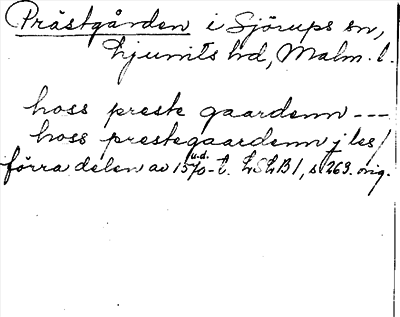 Prästgården i Sjörups sn,
Ljunits hd, Malm. l.
hoss preste gaardenn ---
hoss prestegaardenn j les/
u.d.
förra delen av 1570-t. LSLB1, s 269. orig.